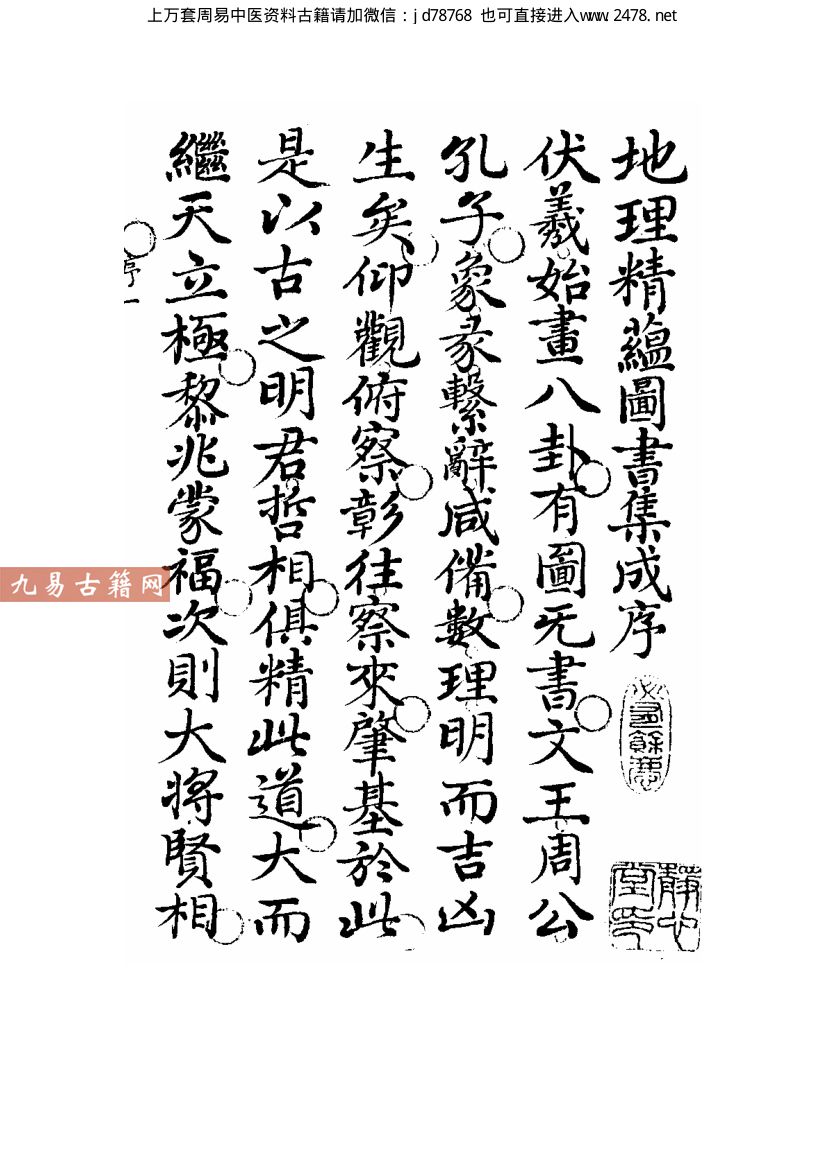 上万套周易中医资料古籍请加微信：jd78768 也可直接进入www.2478.net
地理精蘊圖書集成序
伏羲始畫八卦有圖无書文王周公
孔子象彖繫辭咸備數理明而吉凶
生矣仰觀俯察彰往察來肇基於此
是以古之明君哲相俱精此道大而
繼天立極黎兆蒙福次則大將賢相
序一
九易古籍网